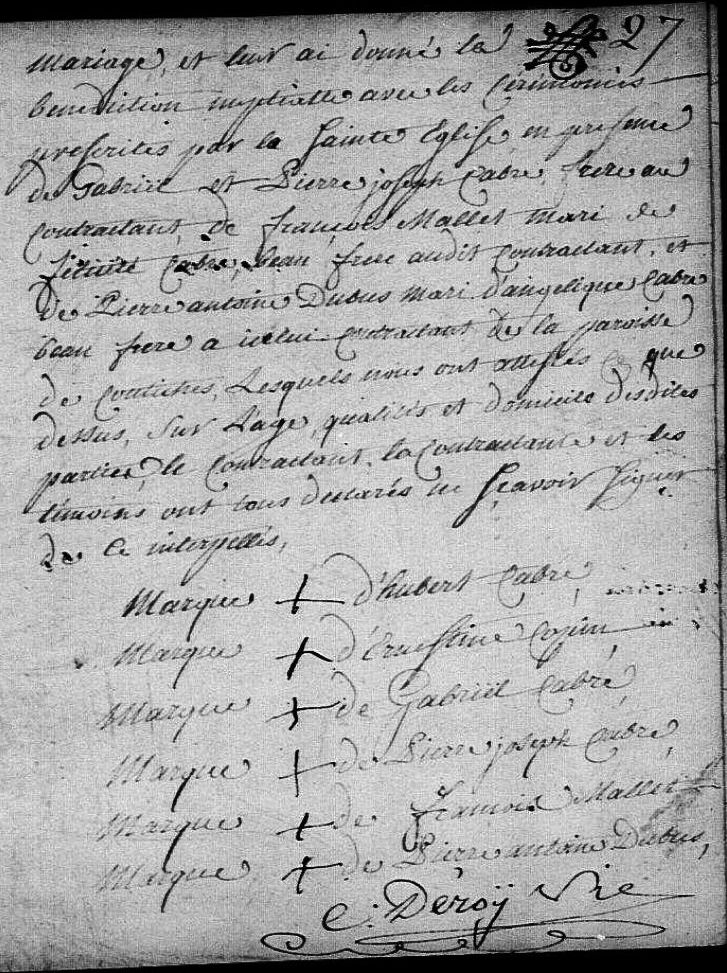 mariage, et leur ai donné la 27
benediction nuptialle avec les Cérémonies
prescrites par la Sainte Eglise en presence
de Gabriël et Pierre joseph Cabre frere au
contractant, de françois Mallet mari de
félicité Cabre, beau frere audit contractant, et
de Pierre antoine Dubus mari d'angelique Cabre
beau frere a icelui contractant de la paroisse
de coutiches, Lesquels nous ont attestés ce que
dessus, sur L'age, qualités et domicile desdites
parties, le Contractant, la Contractante et les
témoins ont tous declarés ne Scavoir Signer
de ce interpellés,
Marque + d'hubert Cabre
Marque + d'Ernestine
Marque + de Gabriël Cabré
Marque + de Pierre joseph Cabre
Marque + de françois Mallet
Marque + de Pierre antoine Dubus,
C. Deroÿ Vic